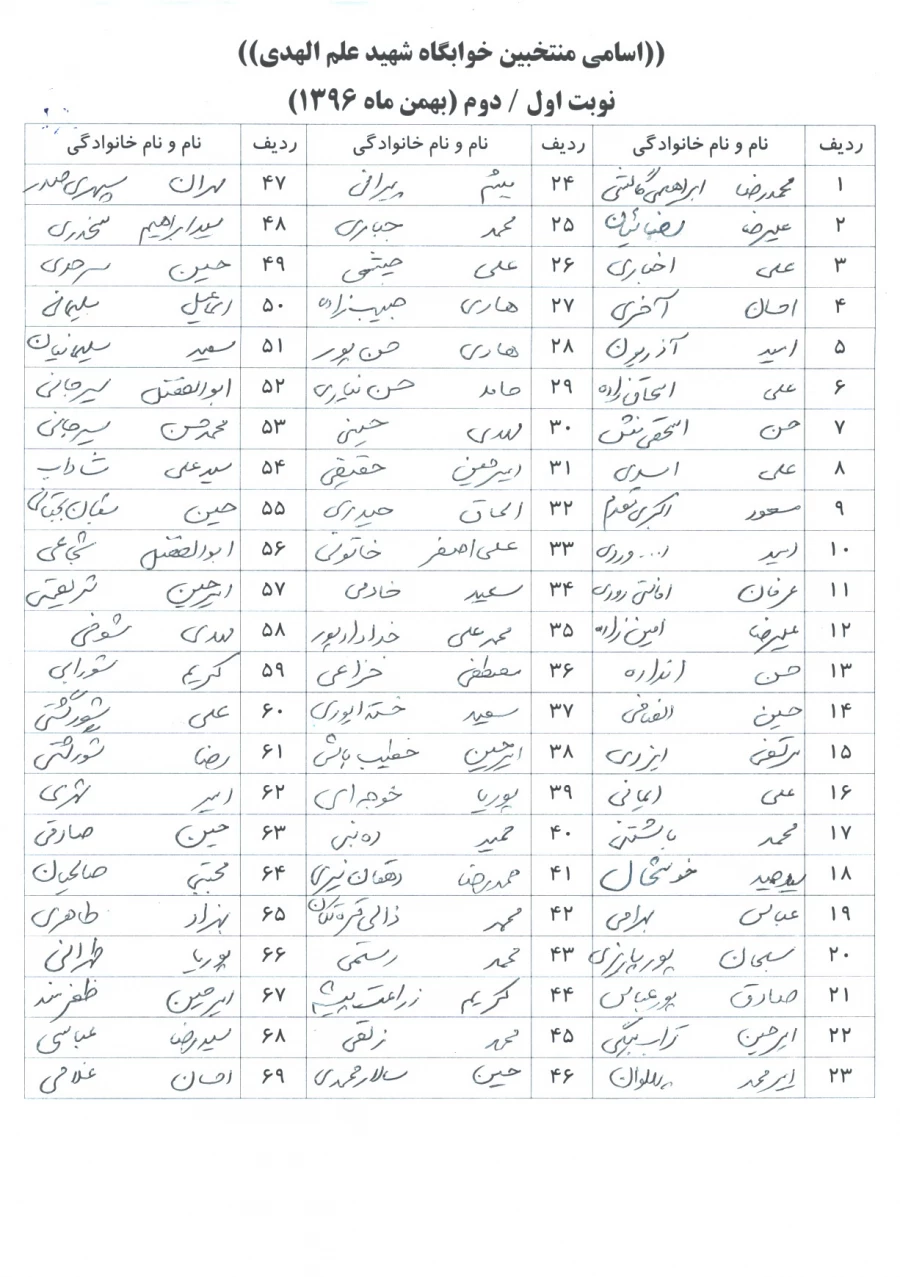 ((اسامی منتخبین خوابگاه شهید علم الهدی))
نوبت اول / دوم (بهمن ماه ۱۳۹۶)
ردیف نام و نام خانوادگی ردیف نام و نام خانوادگی ردیف نام و نام خانوادگی
۱ محمدرضا ۲۴ میثم پیرانی ۴۷ مهران سپهری صدر
۲ علیرضا ۲۵ محمد جباری ۴۸ سید ابراهیم سخدری
۳ علی اخباری ۲۶ علی ۴۹ حسین سرحدی
۴ احسان آخری ۲۷ هادی حبیب زاده ۵۰ اسماعیل سلیمانی
۵ امید آذریون ۲۸ هادی حسن پور ۵۱ سعید سلیمانیان
۶ علی اسحاق زاده ۲۹ حامد حسن نیازی ۵۲ ابوالفضل سیرجانی
۷ حسن اسحقی منش ۳۰ مهدی حسینی ۵۳ محمدحسن سیرجانی
۸ علی اسدی ۳۱ امیرحسین حقیقی ۵۴ سیدعلی شاداب
۹ مسعود اکبری مقدم ۳۲ اسحاق حیدری ۵۵ حسین
۱۰ امید ۳۳ علی اصغر خاتونی ۵۶ ابوالفضل شجاعی
۱۱ عرفان ۳۴ سعید خادمی ۵۷ امیرحسین شریعتی
۱۲ علیرضا امین زاده ۳۵ محمدعلی خدادادپور ۵۸ مهدی شوقی
۱۳ حسن اندازه ۳۶ مصطفی خزاعی ۵۹ کریم شورابی
۱۴ حسین انصافی ۳۷ سعید ۶۰ علی شورگشتی
۱۵ مرتضی ایزدی ۳۸ امیرحسین خطیب باشی ۶۱ رضا شورگشتی
۱۶ علی ایمانی ۳۹ پوریا خوجه ای ۶۲ امیر شهری
۱۷ محمد باشتنی ۴۰ حمید ده نبی ۶۳ حسین صادقی
۱۸ خوشحال ۴۱ محمدرضا دهقان نیری ۶۴ مجتبی صالحیان
۱۹ عباس بهرامی ۴۲ محمد ۶۵ بهزاد طاهری
۲۰ سبحان پورپاریزی ۴۳ محمد رستمی ۶۶ پوریا طهرانی
۲۱ صادق پورعباس ۴۴ کریم زراعت پیشه ۶۷ امیرحسین ظفرمند
۲۲ امیرحسین تراب بیگی ۴۵ محمد زلقی ۶۸ سیدرضا عباسی
۲۳ امیرمحمد پهلوان ۴۶ حسین سالارمحمدی ۶۹ احسان غلامی